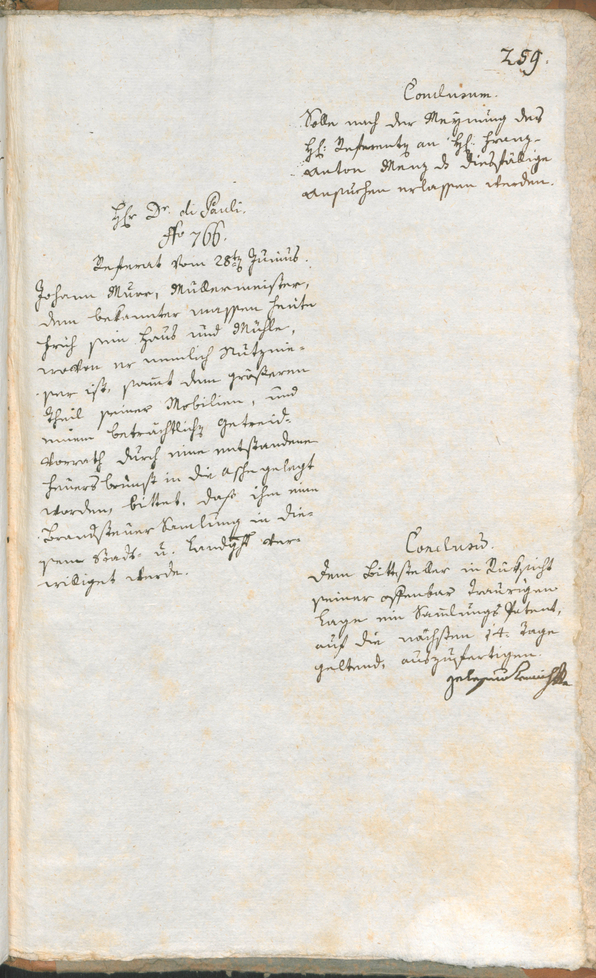 259.
Conclusum.
Solle nach der Meynung des
H: Referenten an H: Franz
Anton Menz das diesfällige
Ansuchen erlassen werden.
Hr Dr. di Pauli.
No 766.
Referat vom 28ten Junius.
Johann Mure, Müllermeister,
dem bekannter massen heute
früh sein Haus und Mühle,
wovon er nemlich Nutznie-
ser ist, samt dem größeren
Theil seiner Mobilien, und
einem beträchtlichen Getreid-
vorrath durch eine entstandene
Feuersbrunst in die Asche gelegt
worden, bittet, daß ihm eine
Brandsteuer Samlung in die-
sem Stadt- u. Landgericht ver-
williget werde.
Conclusum.
Dem Bittsteller in Rüksicht
seiner offenbar traurigen
Lage ein Samlungs Patent,
auf die nächsten 14. Tage
geltend, auszufertigen.